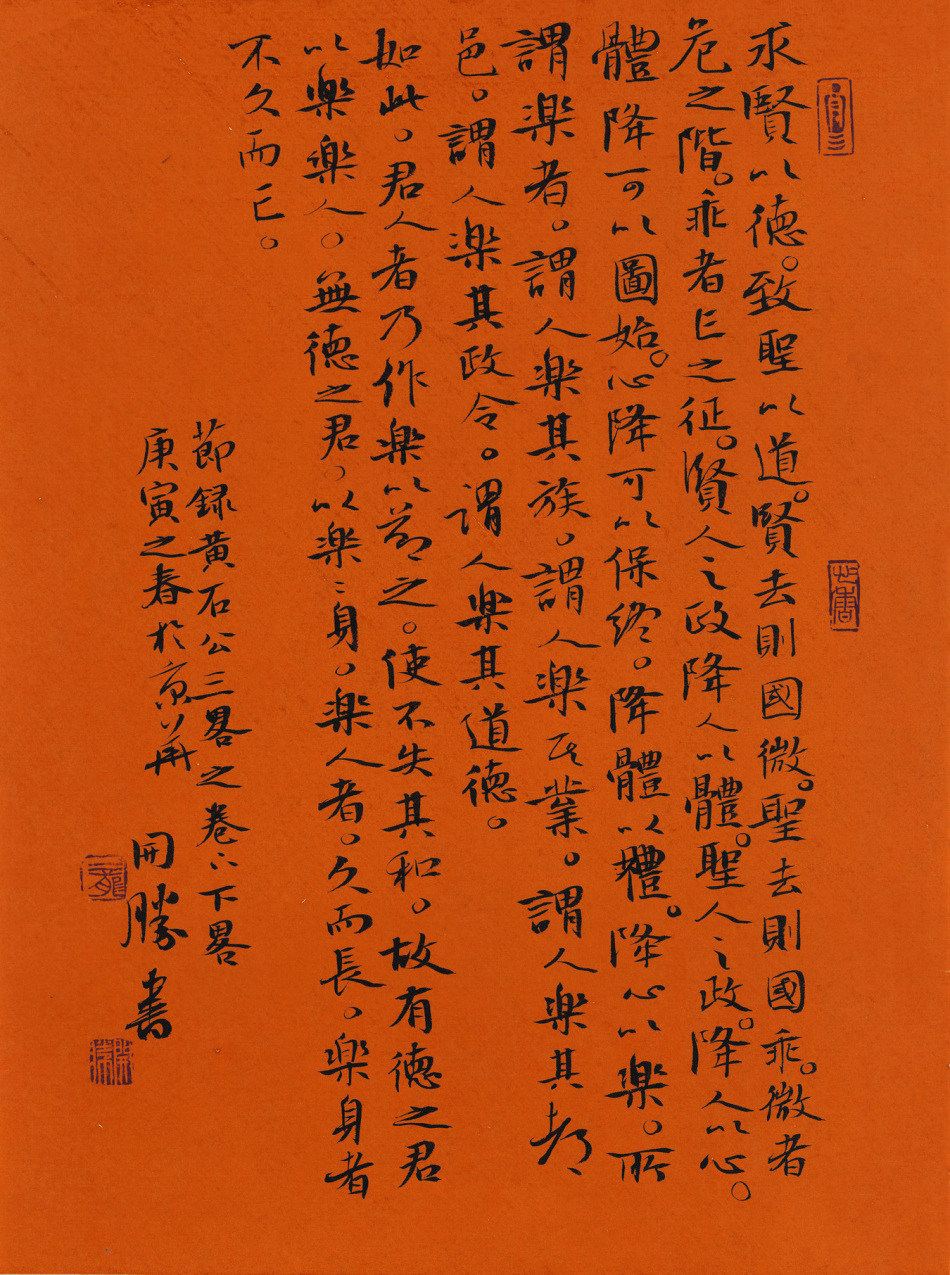 求賢以德。致聖以道。賢去則國微。聖去則國乖。微者
危之階。乖者亡之征。賢人之政降人以體。聖人之政。降人以心。
體降可以圖始。心降可以保終。降體以禮。降心以樂。所
謂樂者。謂人樂其族。謂人樂其業。謂人樂其都
邑。謂人樂其政令。謂人樂其道德。
如此。君人者乃作樂以節之。使不失其和。故有德之君
以樂樂人。無德之君、以樂樂身。樂人者。久而長。樂身者
不久而亡。
節録黄石公三畧之卷六下畧
庚寅之春於京華
開勝書